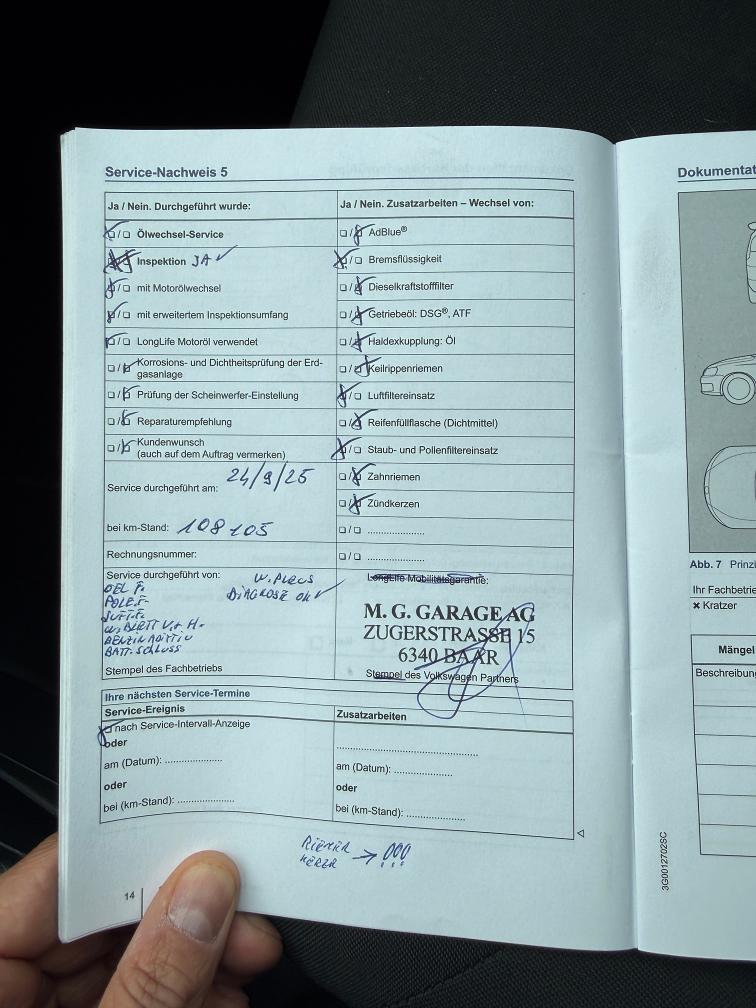 Service-Nachweis 5
Ja / Nein. Durchgeführt wurde:
Ölwechsel-Service
Inspektion JA ✓
mit Motorölwechsel
mit erweitertem Inspektionsumfang
LongLife Motoröl verwendet
Korrosions- und Dichtheitsprüfung der Erd-
gasanlage
Prüfung der Scheinwerfer-Einstellung
Reparaturempfehlung
Kundenwunsch
(auch auf dem Auftrag vermerken)
Service durchgeführt am: 24/9/25
bei km-Stand: 108105
Rechnungsnummer:
Service durchgeführt von:
OEL F.
POLE.F.
LUFT.F.
W. BLETT V. + H.
BENZIN ADITIV
BATT. SCHLUSS
W. PLEUS
DIAGNOSE OK ✓
Stempel des Fachbetriebs
Ja / Nein. Zusatzarbeiten – Wechsel von:
AdBlue®
Bremsflüssigkeit
Dieselkraftstofffilter
Getriebeöl: DSG®, ATF
Haldexkupplung: Öl
Keilrippenriemen
Luftfiltereinsatz
Reifenfüllflasche (Dichtmittel)
Staub- und Pollenfiltereinsatz
Zahnriemen
Zündkerzen
....................
....................
LongLife Mobilitätsgarantie:
M. G. GARAGE AG
ZUGERSTRASSE 15
6340 BAAR
Stempel des Volkswagen Partners
Ihre nächsten Service-Termine
Service-Ereignis
nach Service-Intervall-Anzeige
oder
am (Datum): ....................
oder
bei (km-Stand): ....................
Zusatzarbeiten
..................................................
am (Datum): ....................
oder
bei (km-Stand): ....................
→
14
Dokumentat
Abb. 7 Prinzi
Ihr Fachbetrie
✖ Kratzer
Mängel
Beschreibun
3G0012702SC